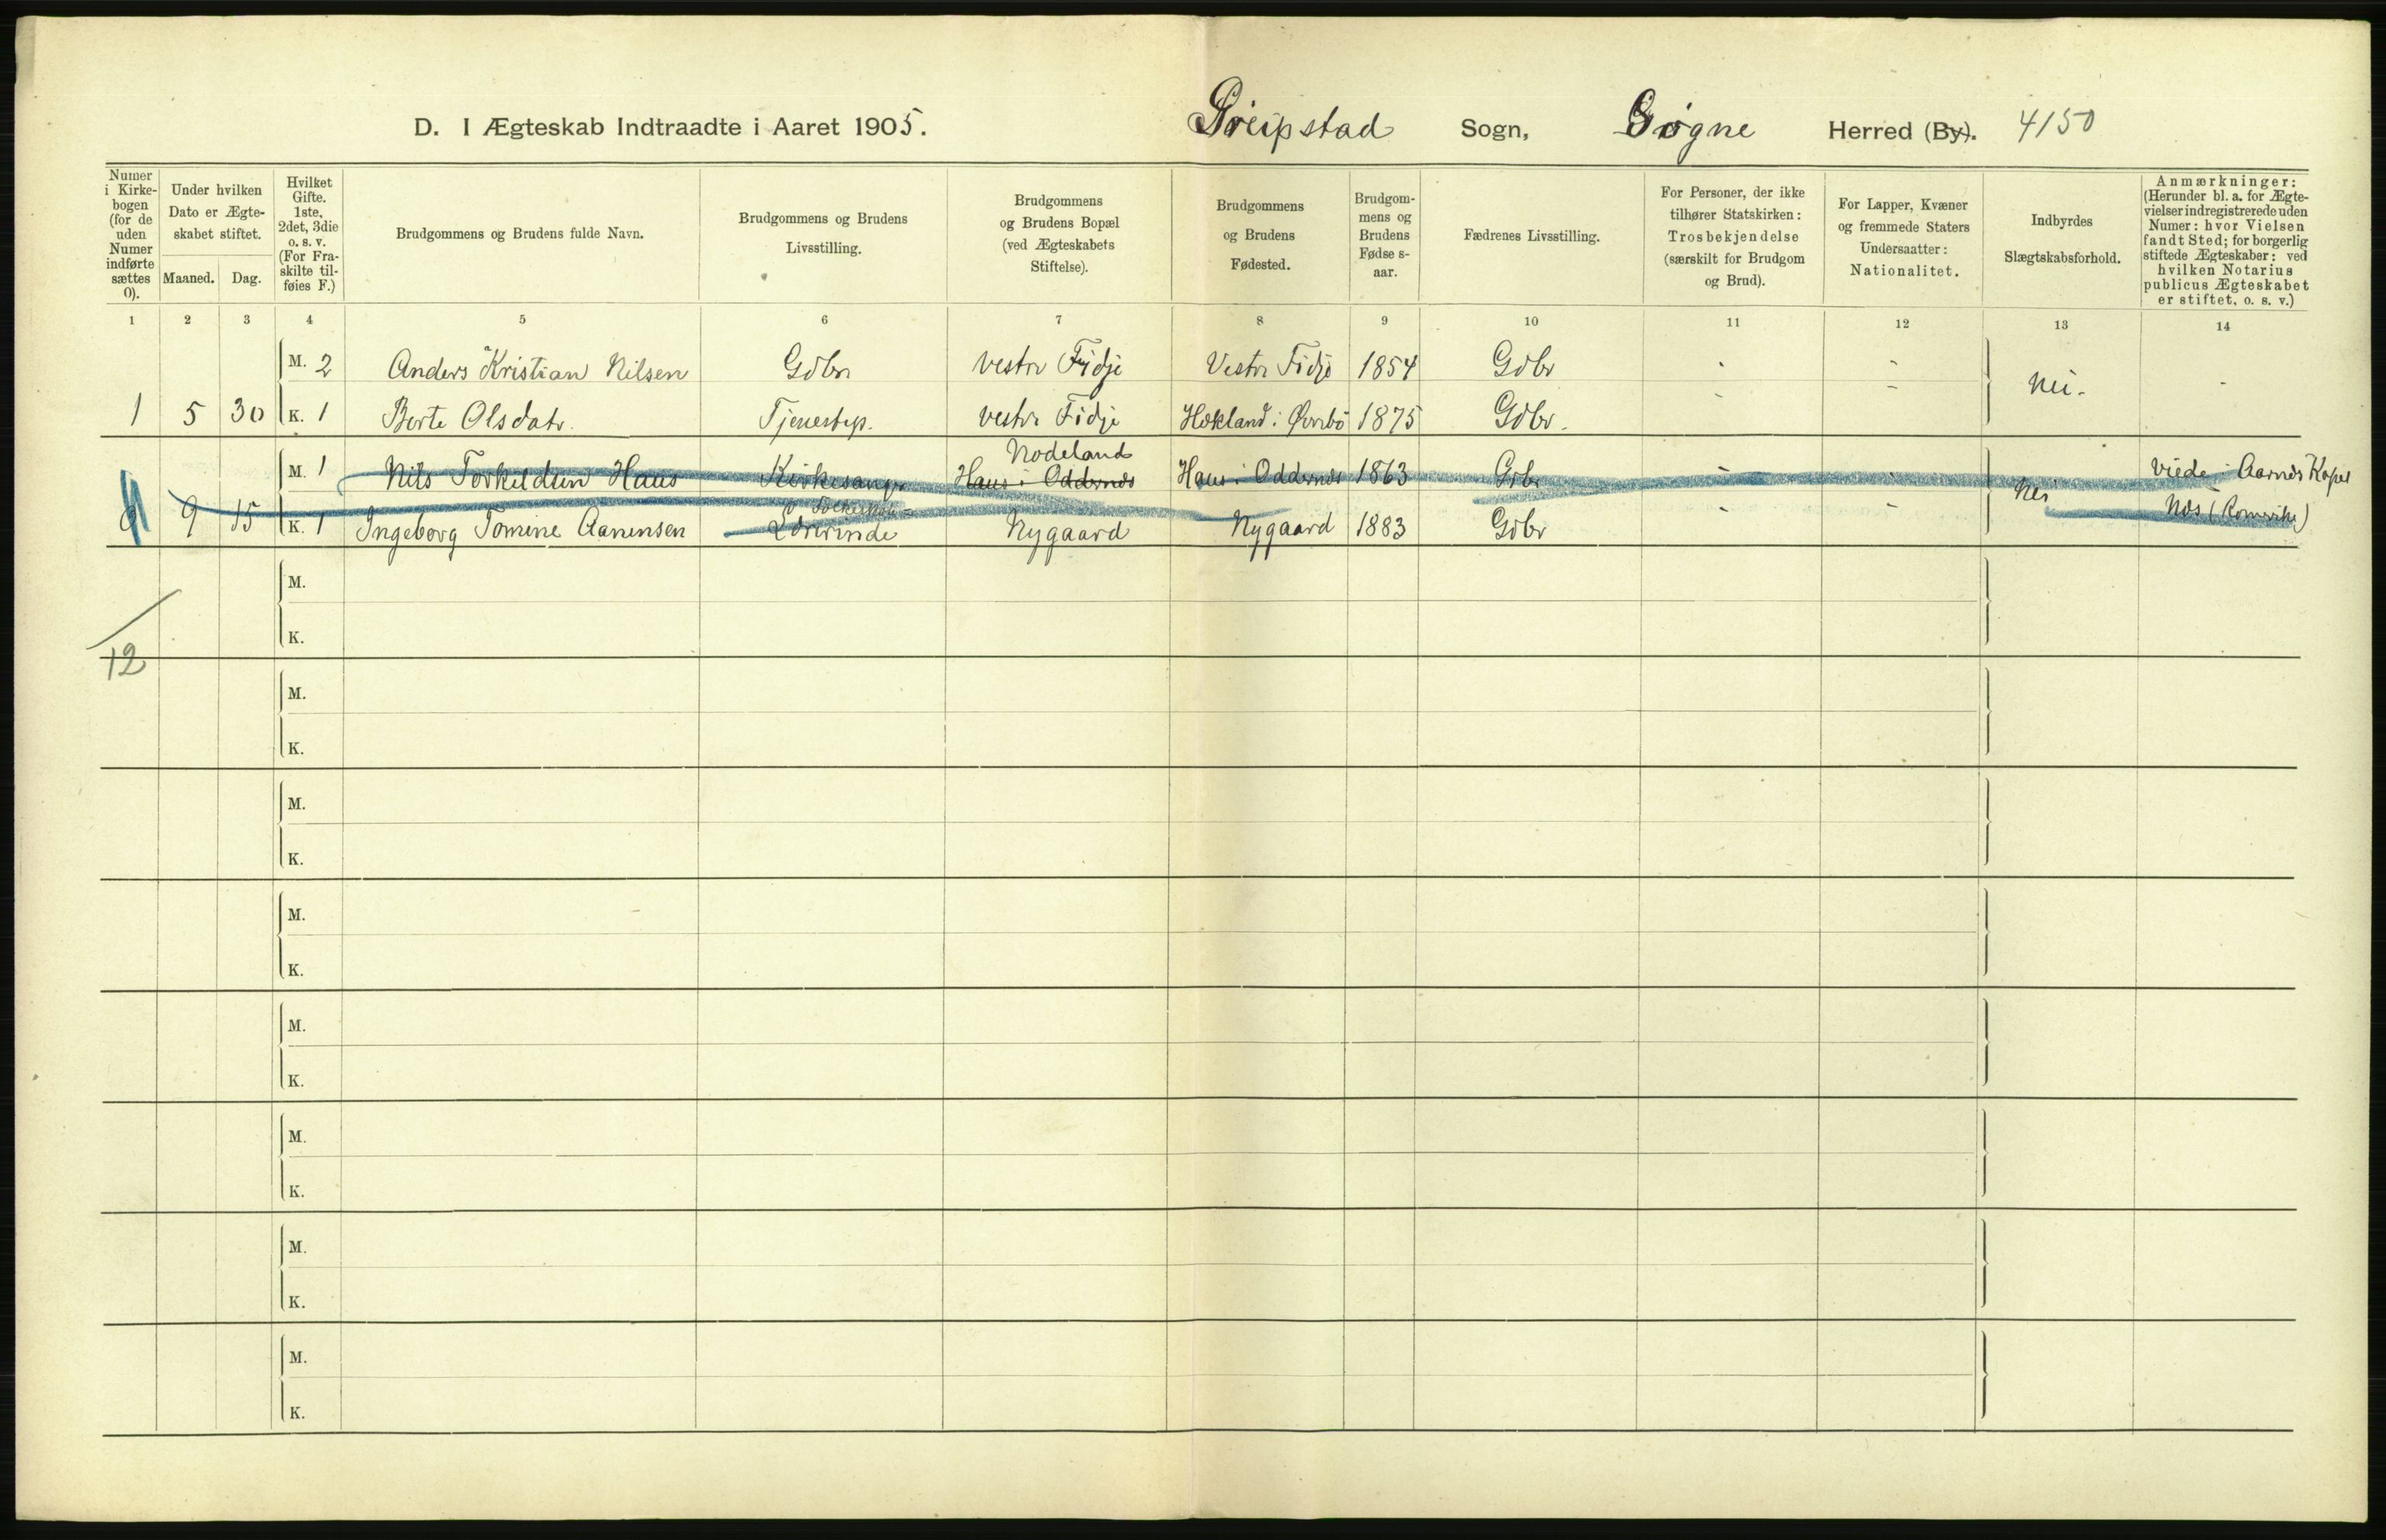 D. I Ægteskab Indtraadte i Aaret 1905. Greipstad Sogn, Søgne Herred (By). 4150
Numer i Kirkebogen (for de uden Numer indførte sættes 0).
Under hvilken Dato er Ægteskabet stiftet.
Maaned. Dag.
Hvilket Gifte. 1ste, 2det, 3die o. s. v. (For Fraskilte tilføies F.)
Brudgommens og Brudens fulde Navn.
Brudgommens og Brudens Livsstilling.
Brudgommens og Brudens Bopæl (ved Ægteskabets Stiftelse).
Brudgommens og Brudens Fødested.
Brudgommens og Brudens Fødselsaar.
Fædrenes Livsstilling.
For Personer, der ikke tilhører Statskirken: Trosbekjendelse (særskilt for Brudgom og Brud).
For Lapper, Kvæner og fremmede Staters Undersaatter: Nationalitet.
Indbyrdes Slægtskabsforhold.
Anmærkninger: (Herunder bl. a. for Ægtevielser indregistrerede uden Numer: hvor Vielsen fandt Sted; for borgerlig stiftede Ægteskaber: ved hvilken Notarius publicus Ægteskabet er stiftet, o. s. v.)
1 2 3 4 5 6 7 8 9 10 11 12 13 14
M. 2 Anders Kristian Nilsen Gdbr vestre Fidje Vestre Fidje 1854 Gdbr - - Nei. -
1 5 30 K. 1 Berte Olsdatr. Tjenestep. vestre Fidje Hækland i Øvrebø 1875 Gdbr. - -
Nodeland
M. 1 Nils Torkildsen Haus Kirkesanger Haus i Oddernes Haus i Oddernes 1863 Gdbr - - Nei viede i Aarnes Kapel
9 15 K. 1 Ingeborg Tomine Aanensen Lærerinde Nygaard Nygaard 1883 Gdbr - - Næs (Romerike)
M.
K.
12
M.
K.
M.
K.
M.
K.
M.
K.
M.
K.
M.
K.
M.
K.